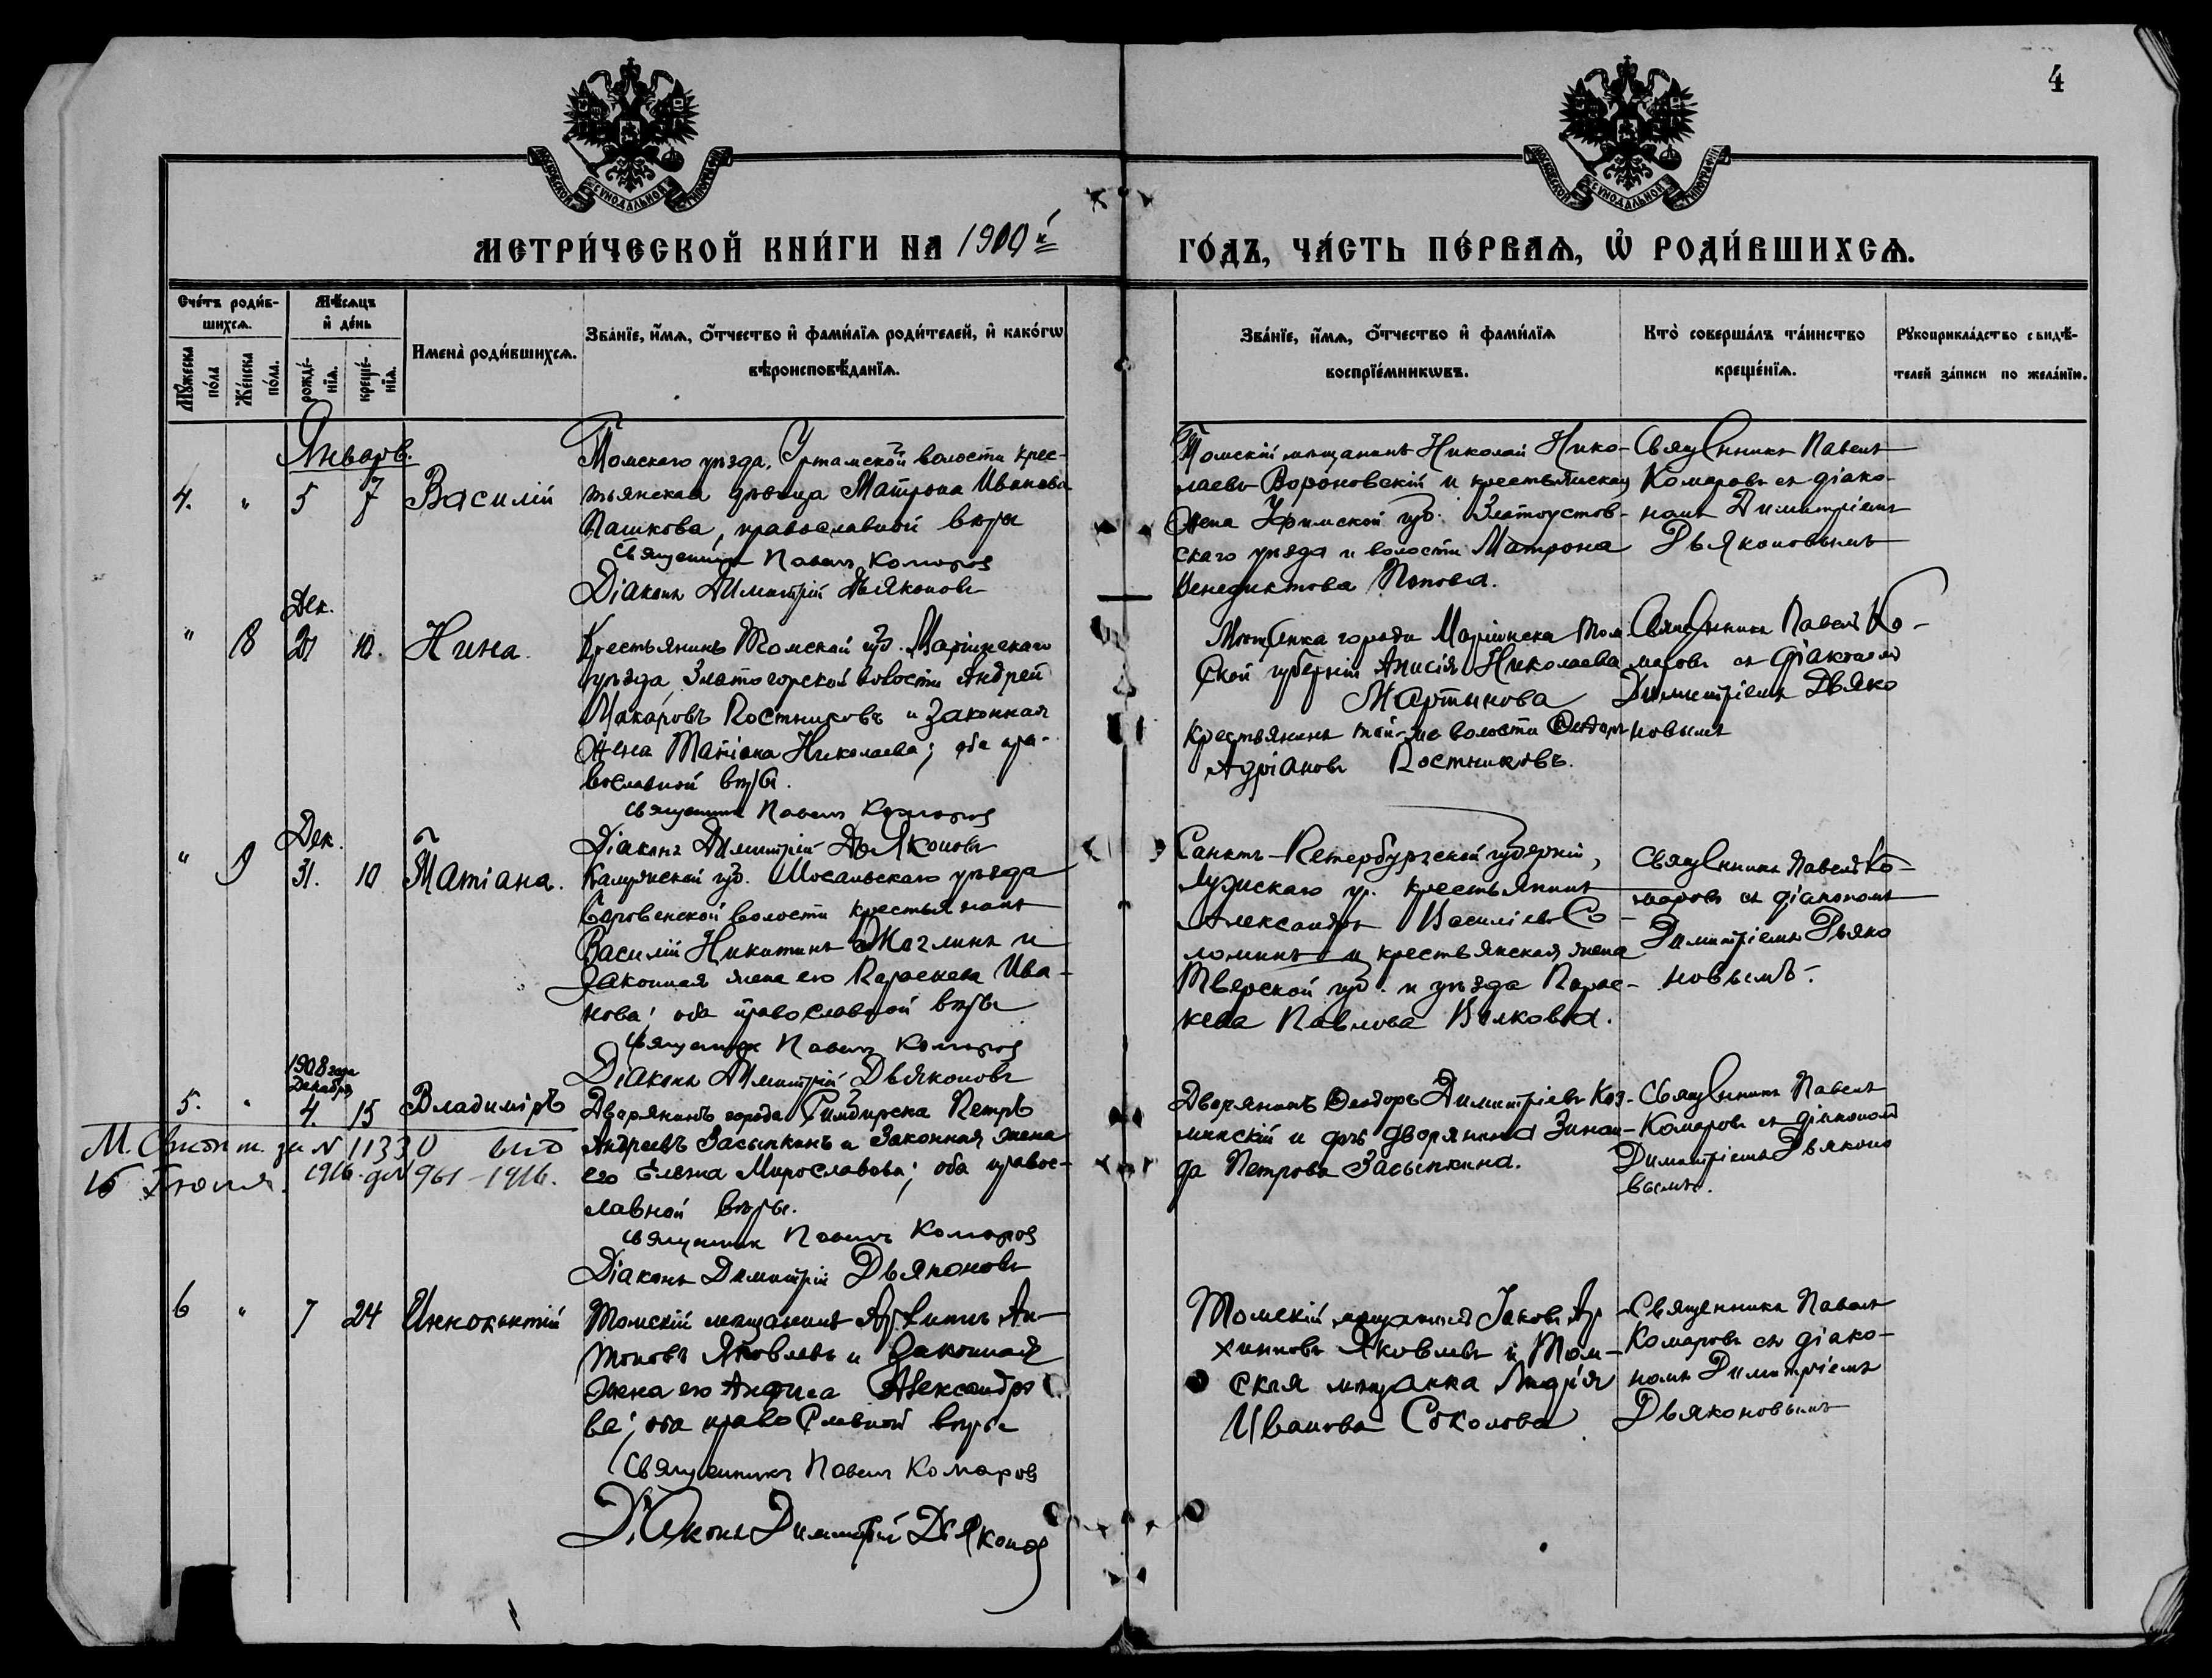 4
МОСКОВСКОЙ СѴНОДАЛЬНОЙ ТИПОГРАФІИ
МОСКОВСКОЙ СѴНОДАЛЬНОЙ ТИПОГРАФІИ
МЕТРИ́ЧЕСКОЙ КНИ́ГИ НА 1909 й
ГО́ДЪ, ЧА́СТЬ ПЕ́РВАѦ, Ѡ҆ РОДИ́ВШИХСѦ.
Сче́тъ роди́в-
шихсѧ.
Мꙋ́жеска по́ла
Же́нска по́ла.
Мѣ́сѧцъ
и҆ де́нь
рожде́-нїѧ.
креще́-нїѧ.
Имена̀ роди́вшихсѧ.
Зва́нїе, и҆́мѧ, ѻ҆́тчество и҆ фами́лїѧ роди́телей, и҆ како́гѡ
вѣроисповѣ́данїѧ.
Зва́нїе, и҆́мѧ, ѻ҆́тчество и҆ фами́лїѧ
воспрїе́мникѡвъ.
Кто̀ соверша́лъ та́инство
креще́нїѧ.
Рꙋкоприкла́дство свидѣ́-
телей за́писи по жела́нїю.
Январь.
4. " 5 7 Василій
Томскаго уѣзда, Уртамской волости крес-
тьянская дѣвица Матрона Иванова
Пашкова, православной вѣры
Священникъ Павелъ Комаровъ
Діаконъ Димитрій Дьяконовъ
Томскій мѣщанинъ Николай Нико-
лаевъ Вороновскій и крестьянская
жена Уфимской губ. Златоустов-
скаго уѣзда и волости Матрона
Венедиктова Попова.
Священникъ Павелъ
Комаровъ съ діако-
номъ Димитріемъ
Дьяконовымъ
Дек.
" 8 10. Нина.
Крестьянинъ Томской губ. Маріинскаго
уѣзда, Златогорской волости Андрей
Макаровъ Костниковъ и законная
жена Татіана Николаева; оба пра-
вославной вѣры.
Священникъ Павелъ Комаровъ
Діаконъ Димитрій Дьяконовъ
Мѣщанка города Маріинска Том-
ской губерніи Анисія Николаева
Мартынова
Крестьянинъ той-же волости
Адріановъ Костниковъ.
Священникъ Павелъ Ко-
маровъ съ діакономъ
Димитріемъ Дьяко
новымъ
Дек.
" 9 31. 10 Татіана.
Калужской губ. Мосальскаго уѣзда
волости крестьянинъ
Василій Никитинъ и
законная жена его Параскева Ива-
нова; оба православной вѣры
Священникъ Павелъ Комаровъ
Діаконъ Димитрій Дьяконовъ
Санктъ-Петербургской губерніи,
Лужскаго у. крестьянинъ
Александръ Василіевъ Со-
ломинъ и крестьянская жена
Тверской губ. и уѣзда Парас-
кева Павлова Волкова.
Священникъ Павелъ Ко-
маровъ съ діакономъ
Димитріемъ Дьяко
новымъ.
1908 года
Декабря
5. " 4. 15 Владиміръ
М. за № 11330
16 Іюля. 1916. 961-1916.
Дворянинъ города Симбирска Петръ
Андреевъ Засыпкинъ и законная жена
его Елена Мирославова; оба правос-
лавной вѣры.
Священникъ Павелъ Комаровъ
Діаконъ Димитрій Дьяконовъ
Дворянинъ Ѳеодоръ Димитріевъ Коз-
минскій и дочь дворянина Зинаи-
да Петрова Засыпкина.
Священникъ Павелъ
Комаровъ съ діакономъ
Димитріемъ Дьяконо
вымъ.
6 " 7 24 Иннокентій
Томскій мѣщанинъ Архипъ Ан-
тоновъ Яковлевъ и законная
жена его Анфиса Александро
ва; оба православной вѣры
Священникъ Павелъ Комаровъ
Діаконъ Димитрій Дьяконовъ
Томскій мѣщанинъ Іаковъ Ар-
хиповъ Яковлевъ и Том-
ская мѣщанка
Иванова Соколова.
Священникъ Павелъ
Комаровъ съ діако-
номъ Димитріемъ
Дьяконовымъ